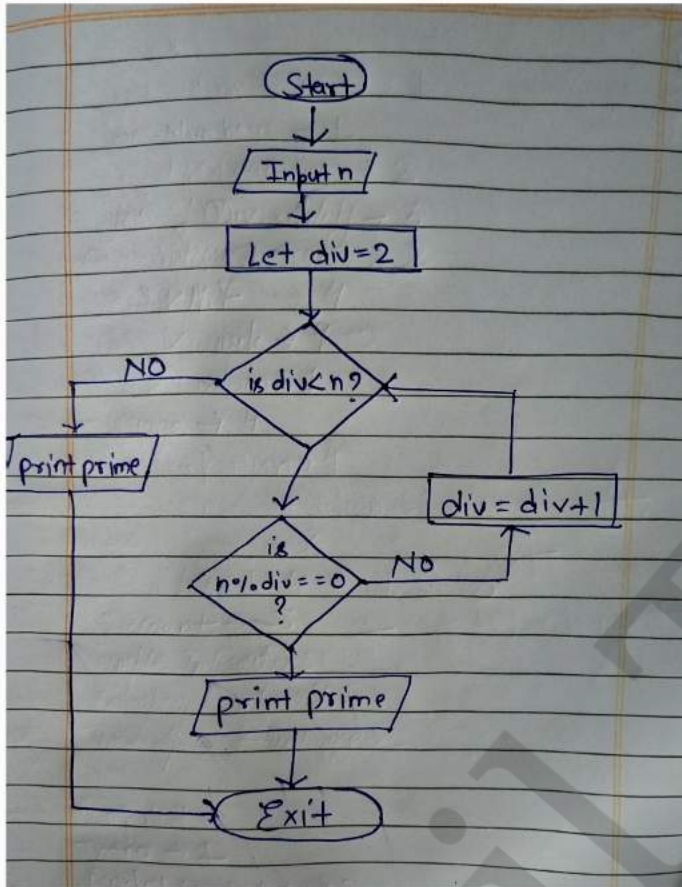 Start
Input n
Let div=2
is div<n?
NO
print prime
div = div+1
is
n%div==0
?
NO
print prime
Exit